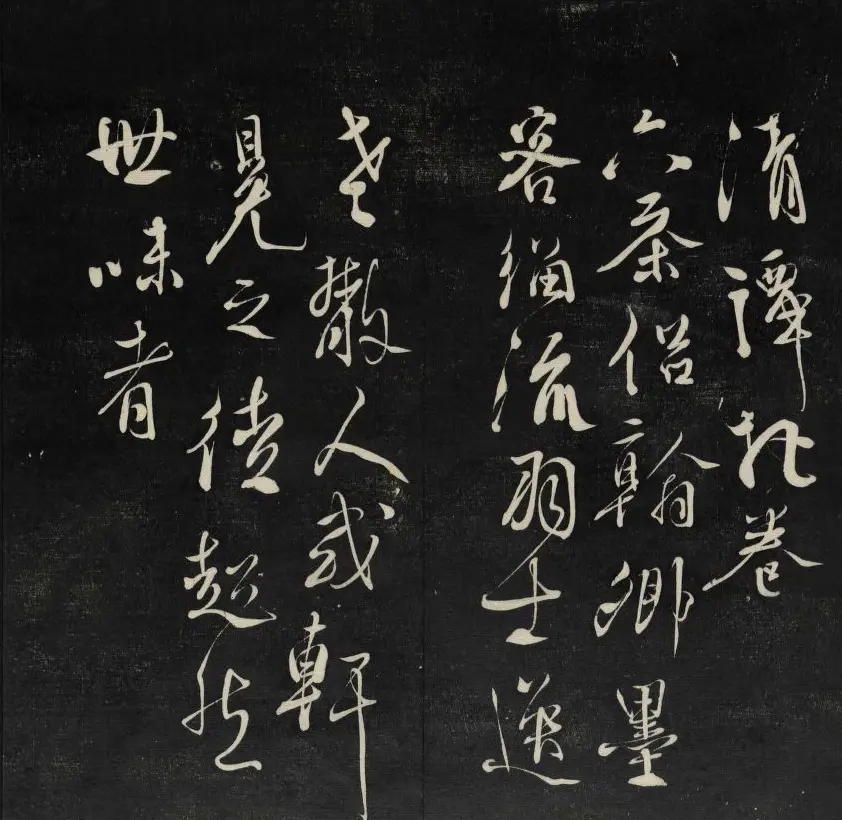 清譚把卷
六茶侶翰卿墨
客緇流羽士逸
老散人或軒
冕之徒超然
世味者